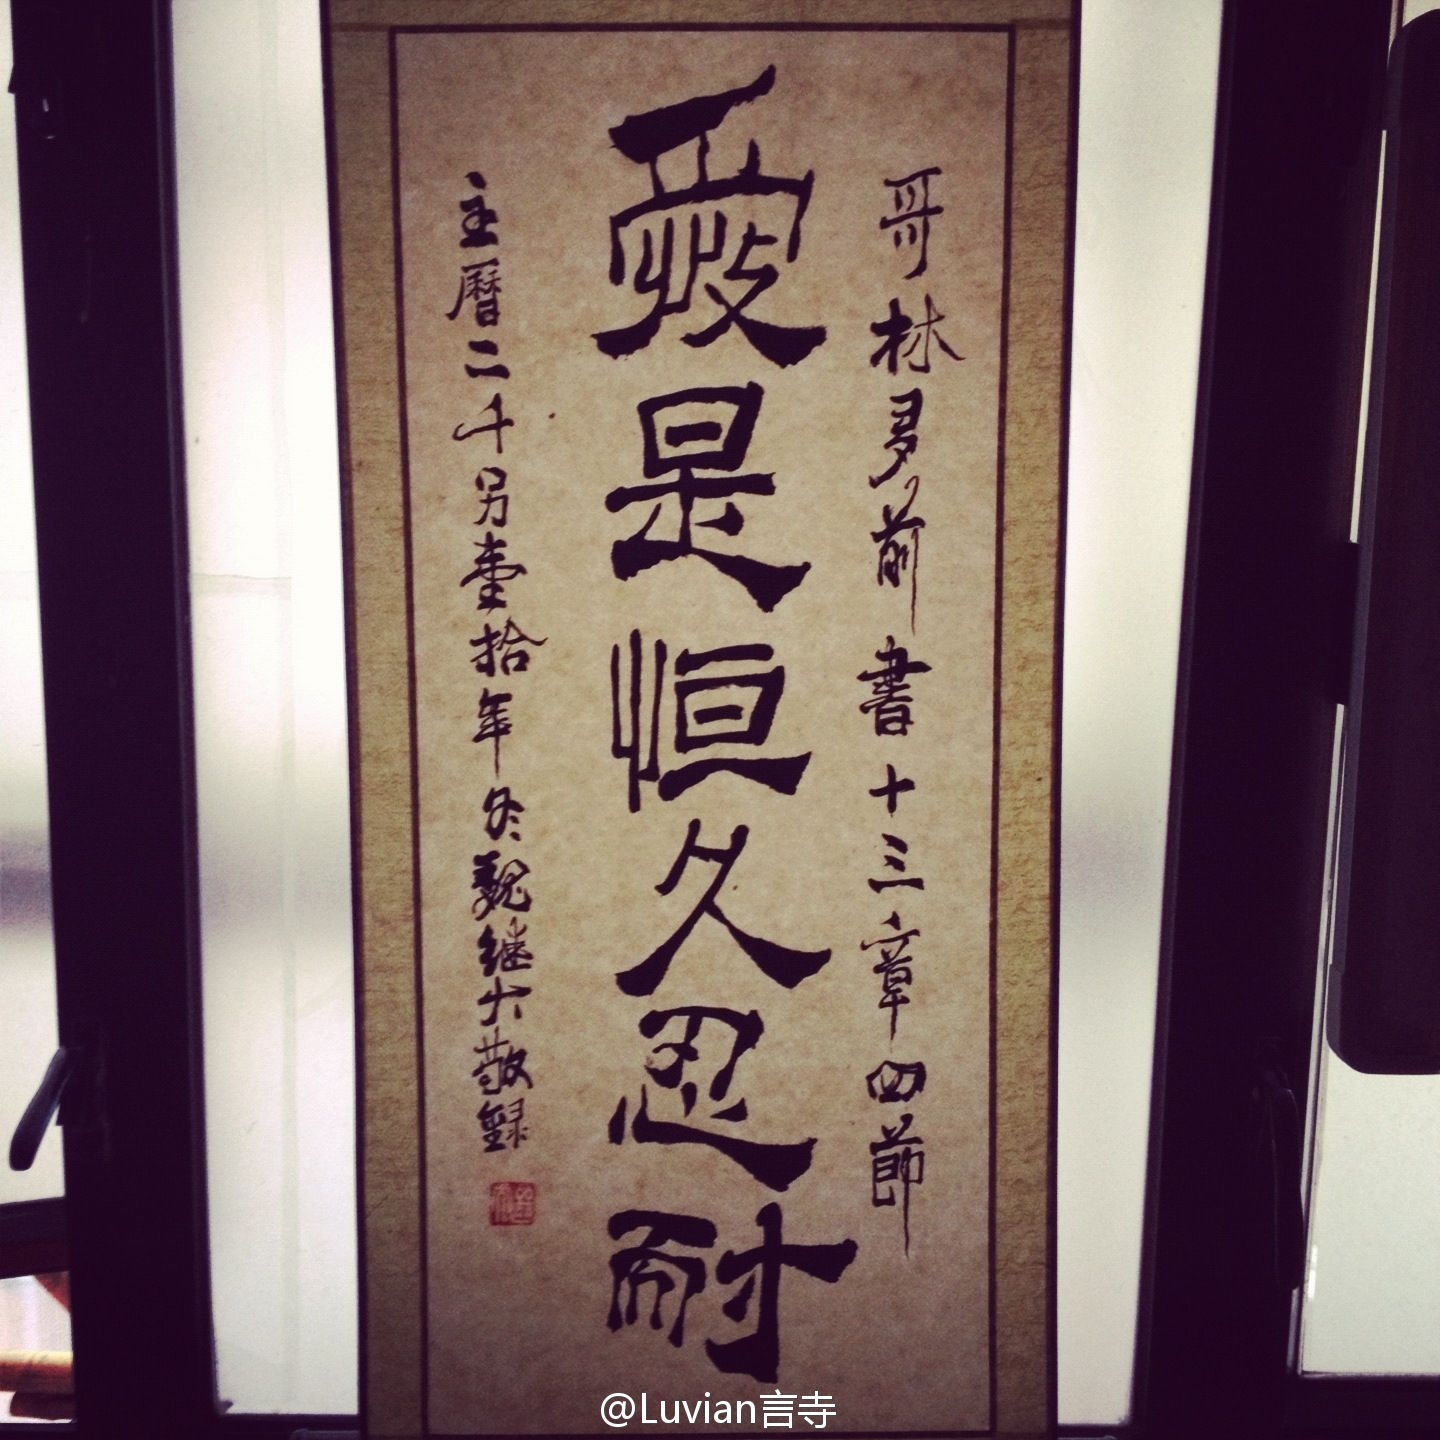 哥林多前書十三章四節
愛是恒久忍耐
主曆二千另壹拾年冬魏继大敬錄
@Luvian言寺